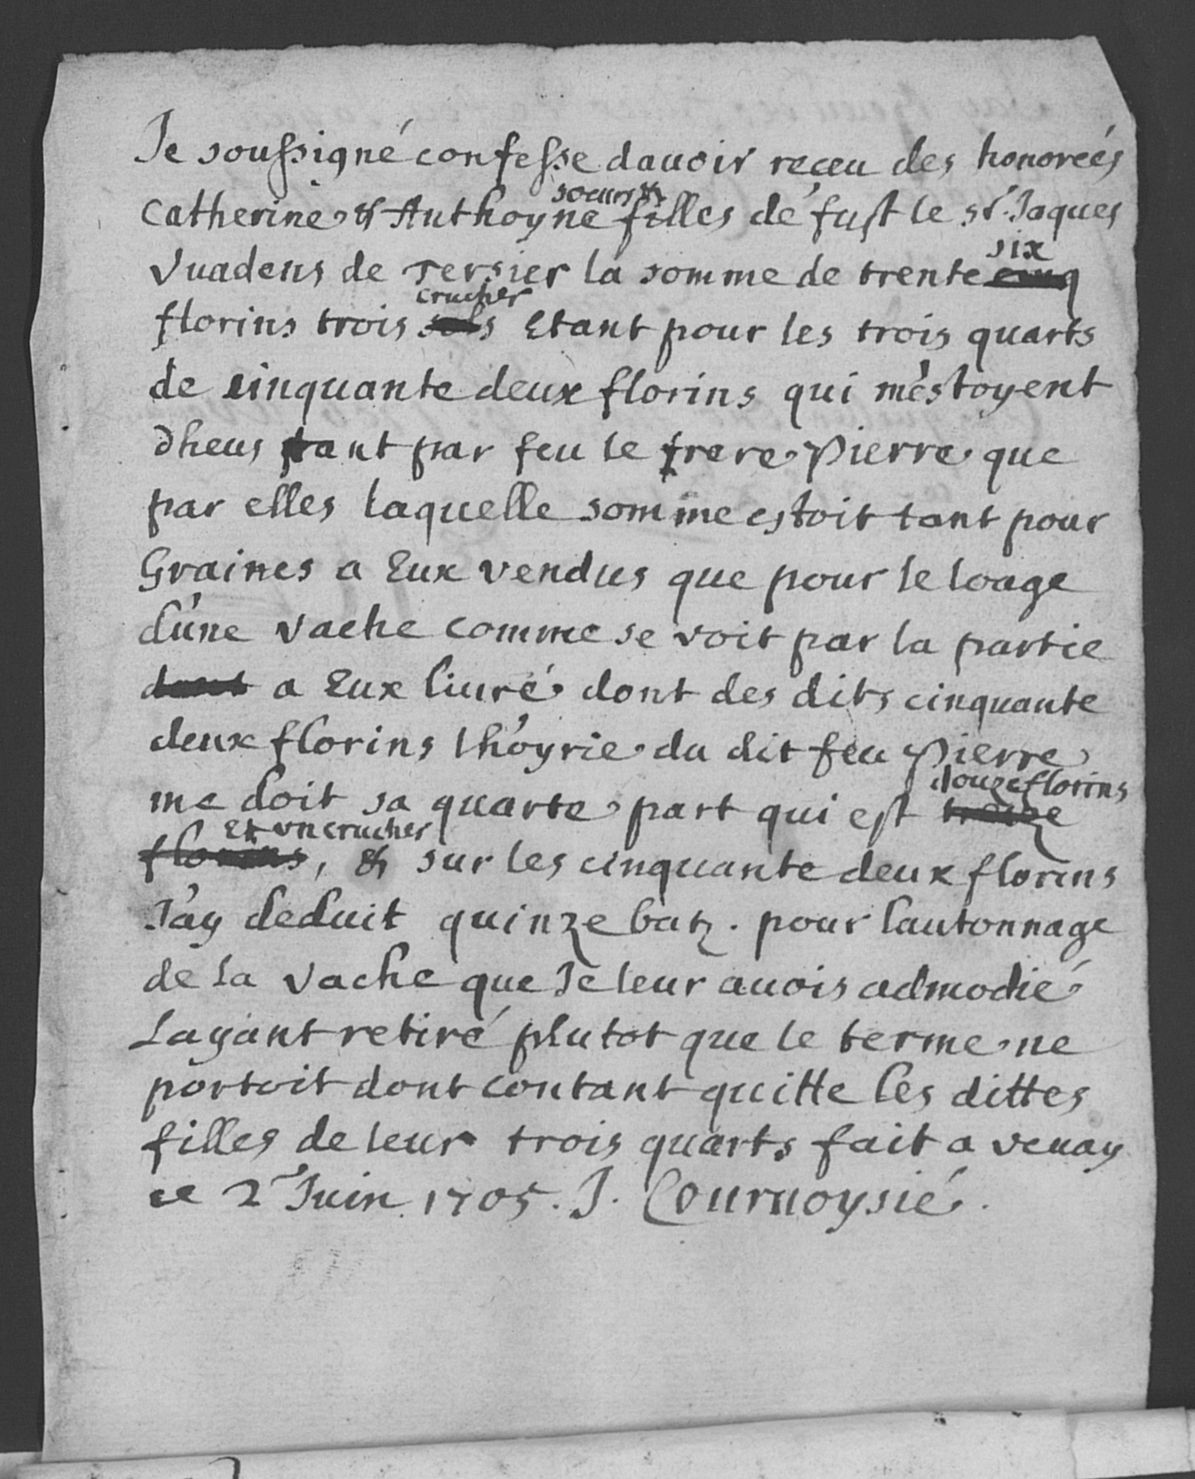 Je soussigné confesse dauoir receu des honoreés
Catherine & Anthoyne soeurs & filles de fust le sr. Jaques
Vuadens de Tersier la somme de trente cinq six
florins trois sols crucher Etant pour les trois quarts
de cinquante deux florins qui m'estoyent
dheus tant par feu le frere Pierre que
par elles laquelle somme estoit tant pour
Graines a Eux vendus que pour le loage
d'une vache comme se voit par la partie
dont a Eux liuré dont des dits cinquante
deux florins lhoyrie du dit feu Pierre
me doit sa quarte part qui est treize douze florins
florins Et vn crucher, & sur les cinquante deux florins
J'ay deduit quinze batz. pour lautonnage
de la vache que Je leur auois admodié
Layant retiré plutot que le terme ne
portoit dont contant quitte les dittes
filles de leur trois quarts fait a veuay
ce 2 Juin 1705. J. Cournoysié.